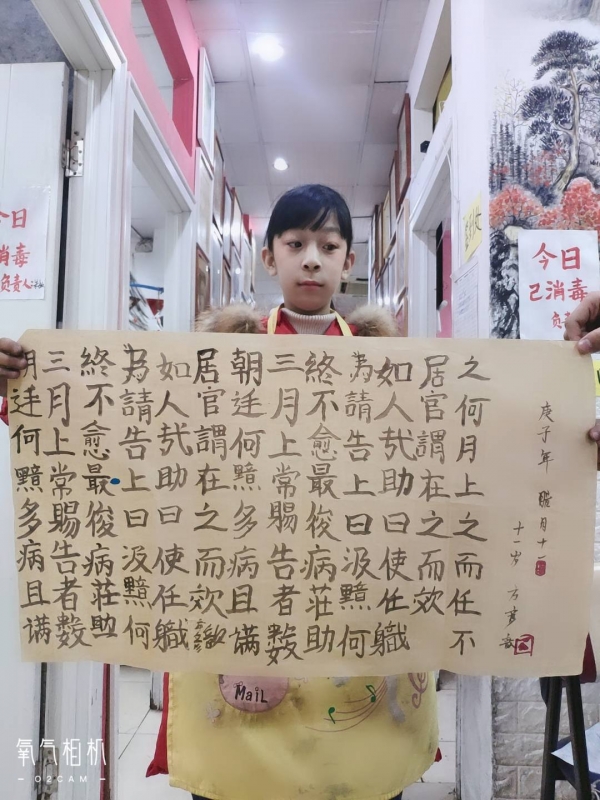 今日
消毒
负责人
今日
己消毒
负责
朝廷何黯多病且满
三月上常賜告者數
終不愈最俊病莊助
為請告上曰汲黯何
如人哉助曰使任職
居官謂在之而效
朝廷何黯多病且满
三月上常賜告者數
終不愈最俊病莊助
為請告上曰汲黯何
如人哉助曰使任職
居官謂在之而效
之何月上之而任不
庚子年 臘月十二
十一岁 方
MaiL
氧气相机
O2CAM